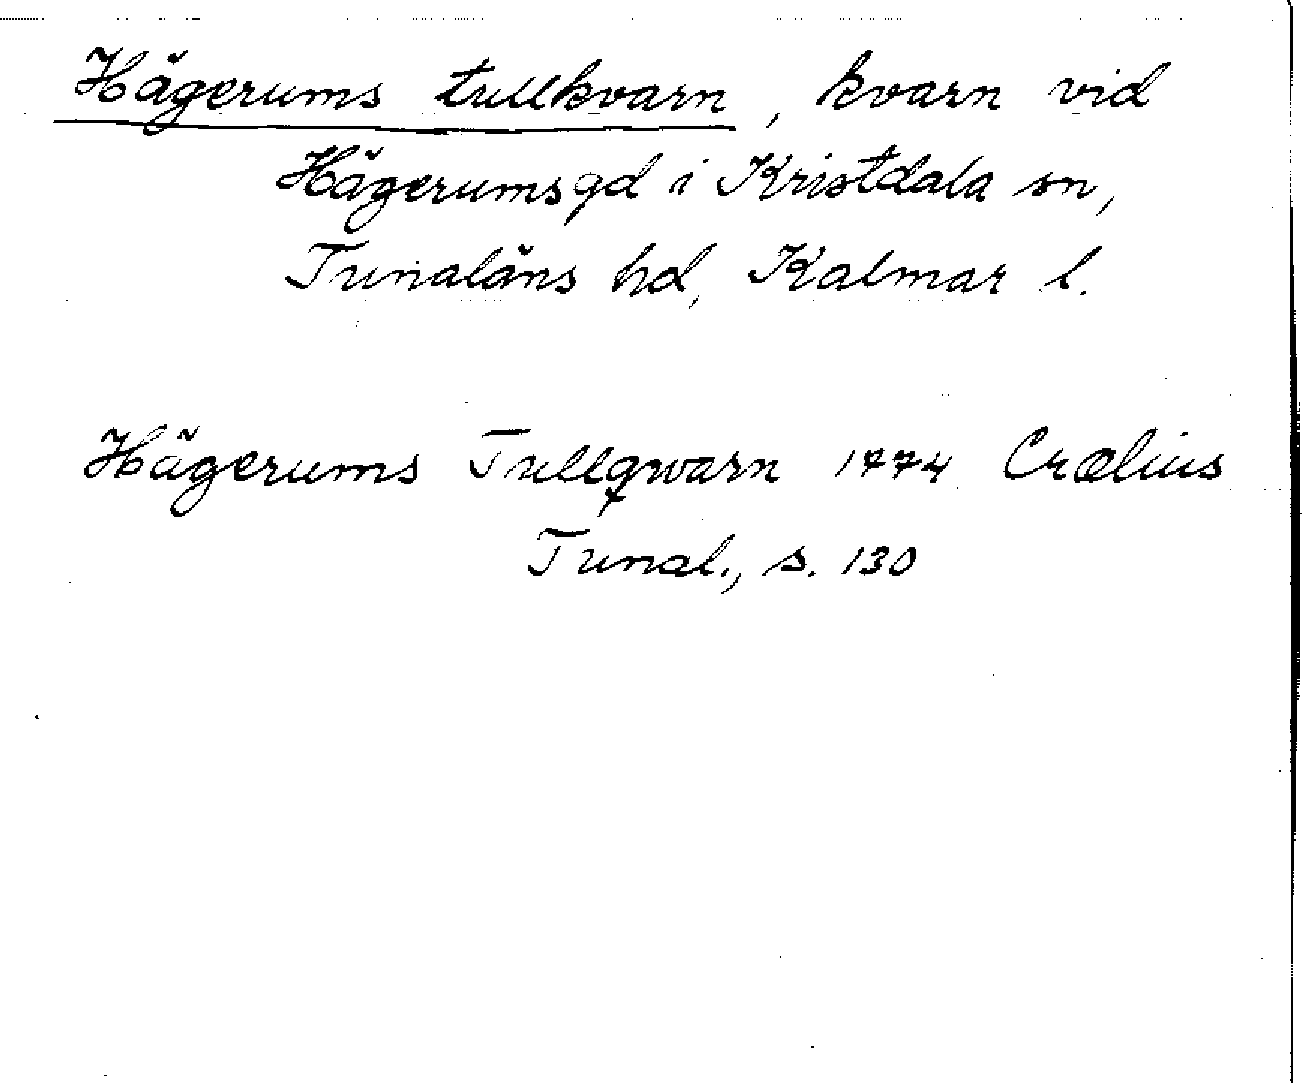 Hägerums tullkvarn, kvarn vid
Hägerums gd i Kristdala sn,
Tunaläns hd, Kalmar l.
Hägerums Tullqwarn 1774 Crælius
Tunal., s. 130